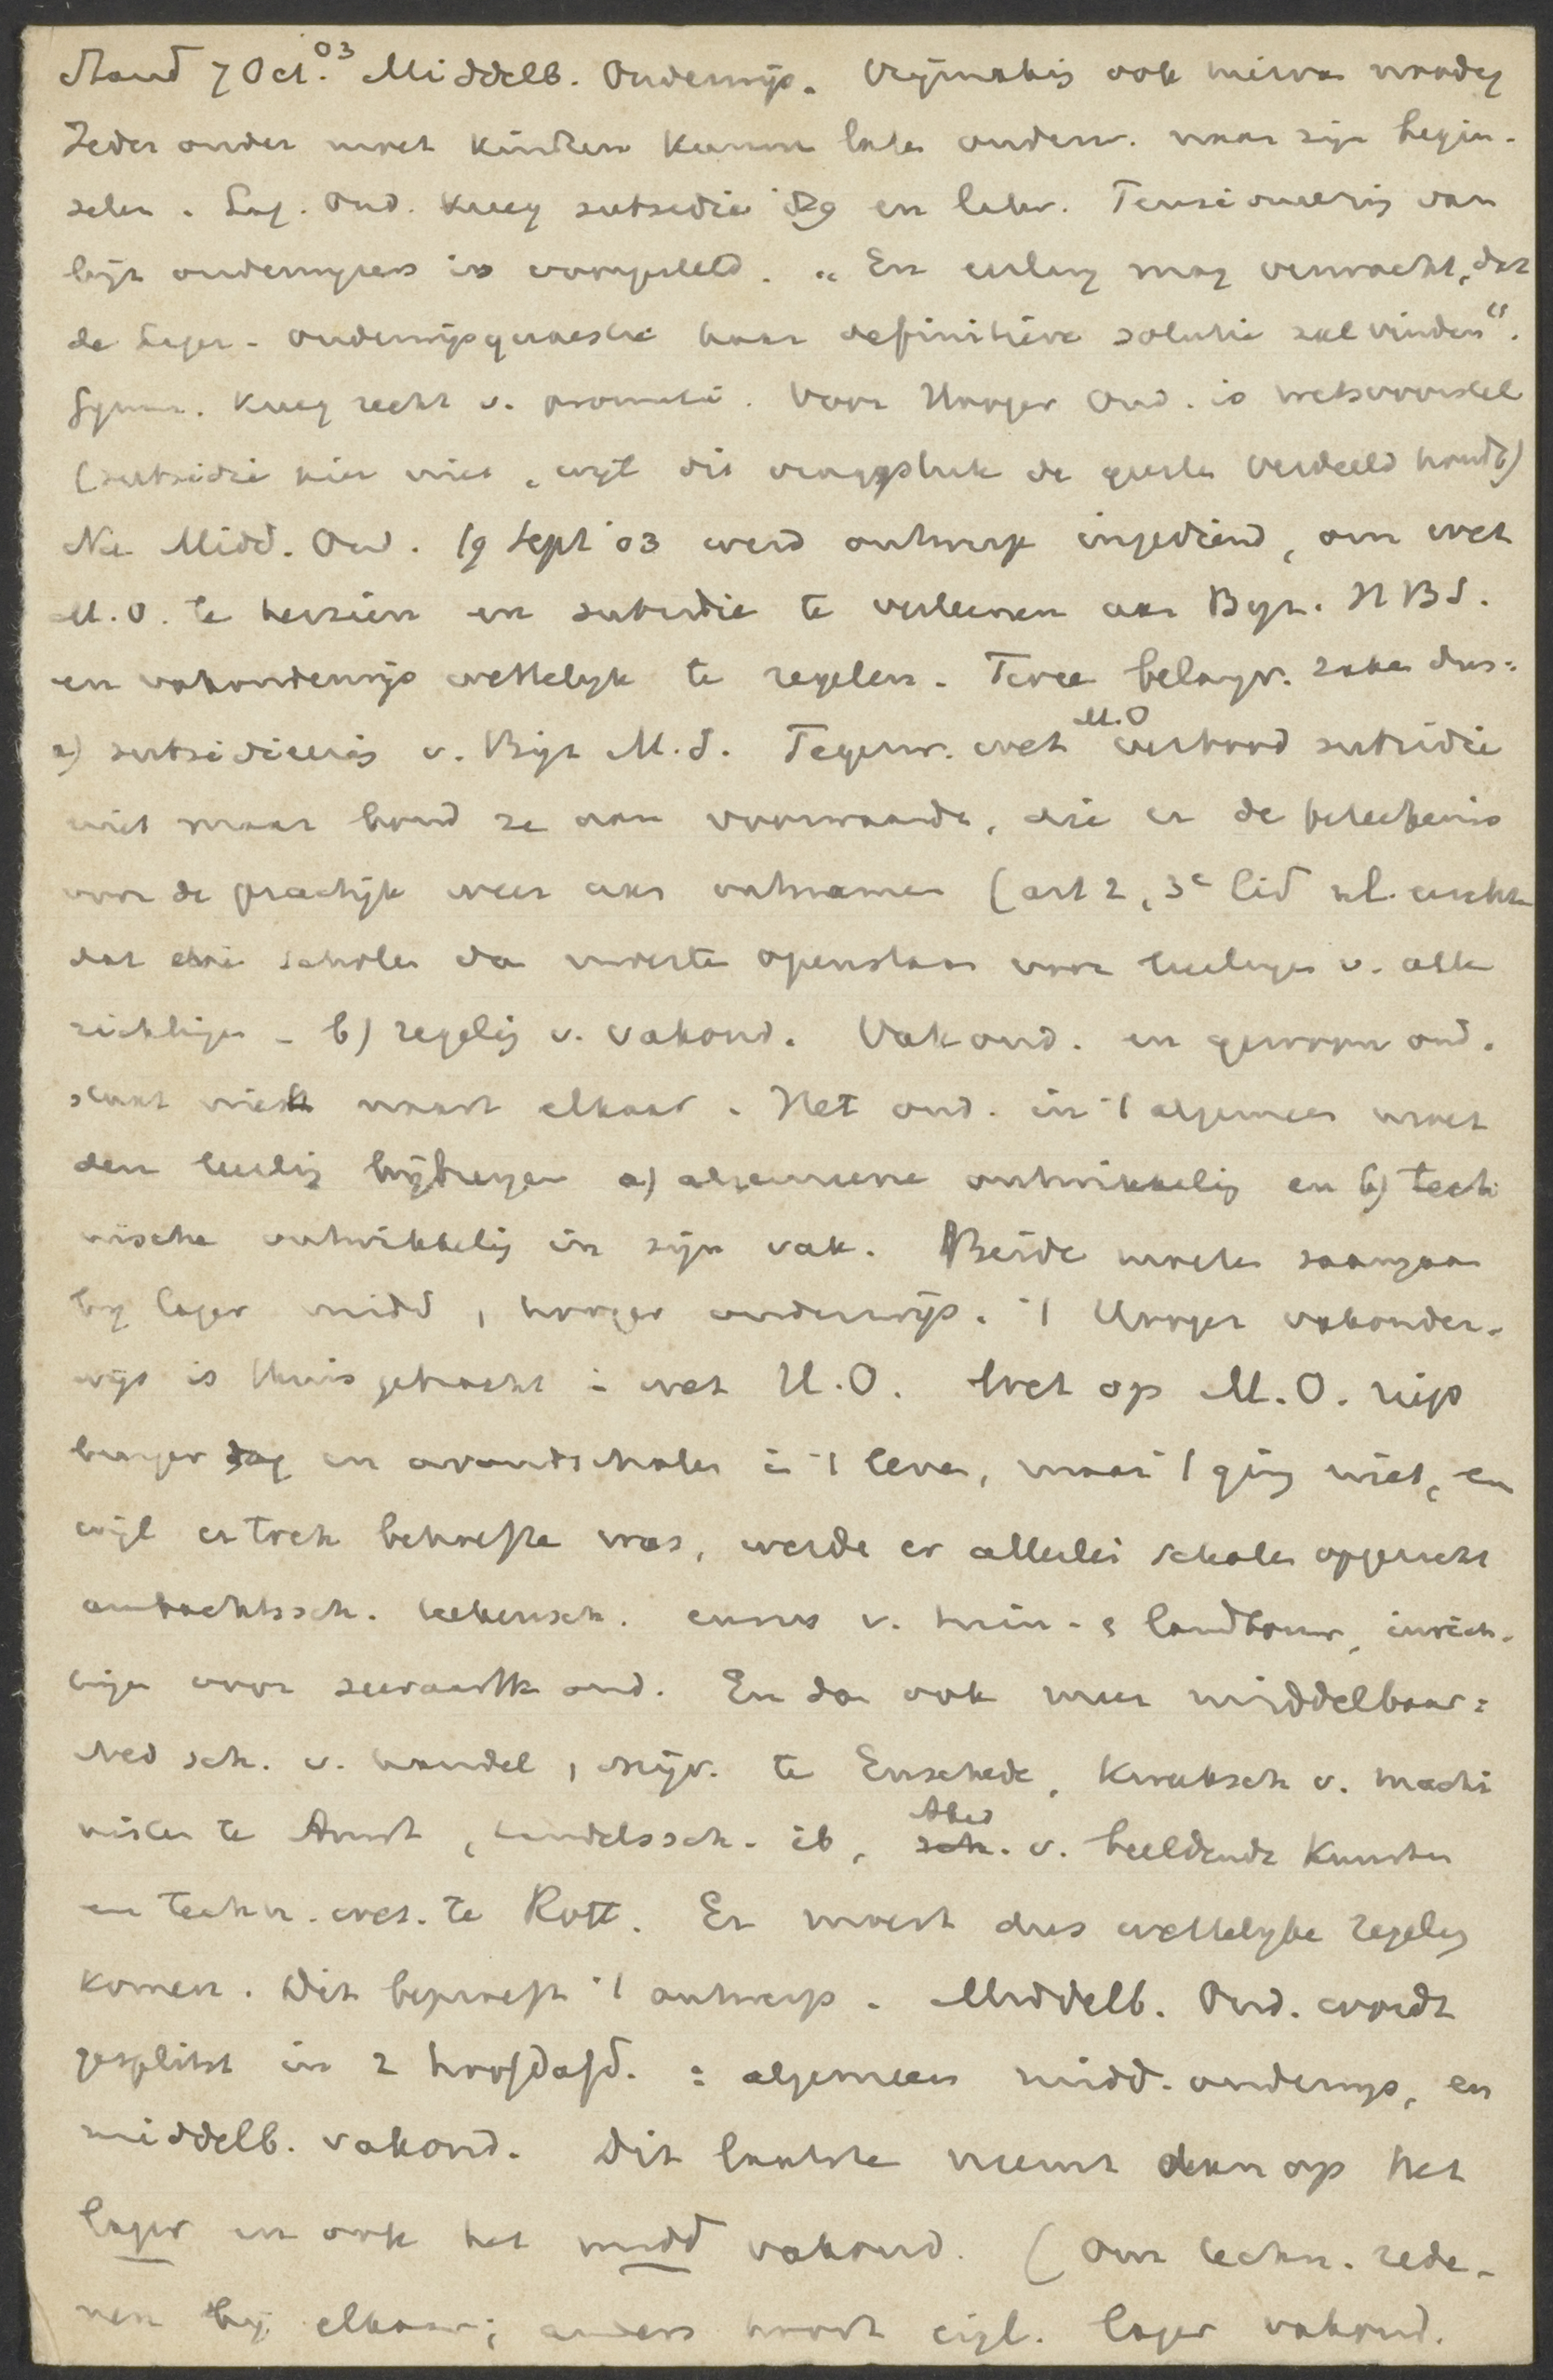 Stand 7 Oct. 03 Middelb. Onderwijs. Vrijmaking ook hierva noodig
Ieder ouder moet kinderen kunnen laten onderw. naar zijn begin-
selen. Lag. Ond. kreeg subsidie '89 en later. Pensioneering van
bijz onderwijzers is voorgesteld. „En eerlang mag verwacht, dat
de Lager-onderwijsquaestie haar definitieve solutie zal vinden“.
Gymn. kreeg recht v. promotie. Voor Hooger Ond. is wetsvoorstel
(subsidie hier niet, wijl dit vraagstuk de geesten verdeeld houdt)
Nu Midd. Ond. 19 Sept '03 werd ontwerp ingediend, om wet
M.O. te herzien en subsidie te verleenen aan Byz. HBS.
en vakonderwijs wettelyk te regelen. Twee belangr. zaken dus:
a) subsidieering v. Bijz M.S. Tegenw. wet M.O verbood subsidie
niet maar bond ze aan voorwaarde, die er de beteekenis
voor de practijk weer aan ontnamen (art 2, 3e lid nl. eischte
dat die scholen dan moesten openstaan voor leerlingen v. alle
richtingen - b) regeling v. vakond. Vakond. en gewoon ond.
staat niet naast elkaar. Het ond. in 't algemeen moet
den leerling bijbrengen a) algemeene ontwikkeling en b) tech
nische ontwikkeling in zijn vak. Beide moeten saamgaan
by lager midd, hooger onderwijs. 't Hooger vakonder-
wijs is thuis gebracht in wet H.O. Wet op M.O. riep
burger dag en avondscholen in 't leven, maar 't ging niet, en
wijl er toch behoefte was, werden er allerlei scholen opgericht
ambachtssch. teekensch. cursus v. tuin- & landbouw, inrich-
tingen voor zeevaartk ond. En dan ook meer middelbaar:
Ned sch. v. handel, nijv. te Enschede, Kweeksch v. machi
nisten te Amst, handelssch. ib, sch. Acad v. beeldende Kunsten
en techn. wet. te Rott. Er moest dus wettelyke regeling
komen. Dit beproeft 't ontwerp. Middelb. Ond. wordt
gesplitst in 2 hoofdafd. : algemeen midd. onderwys, en
middelb. vakond. Dit laatste neemt dan op het
lager en ook het midd vakond. (Om techn. rede-
nen bij elkaar; anders hoort eigl. lager vakond.